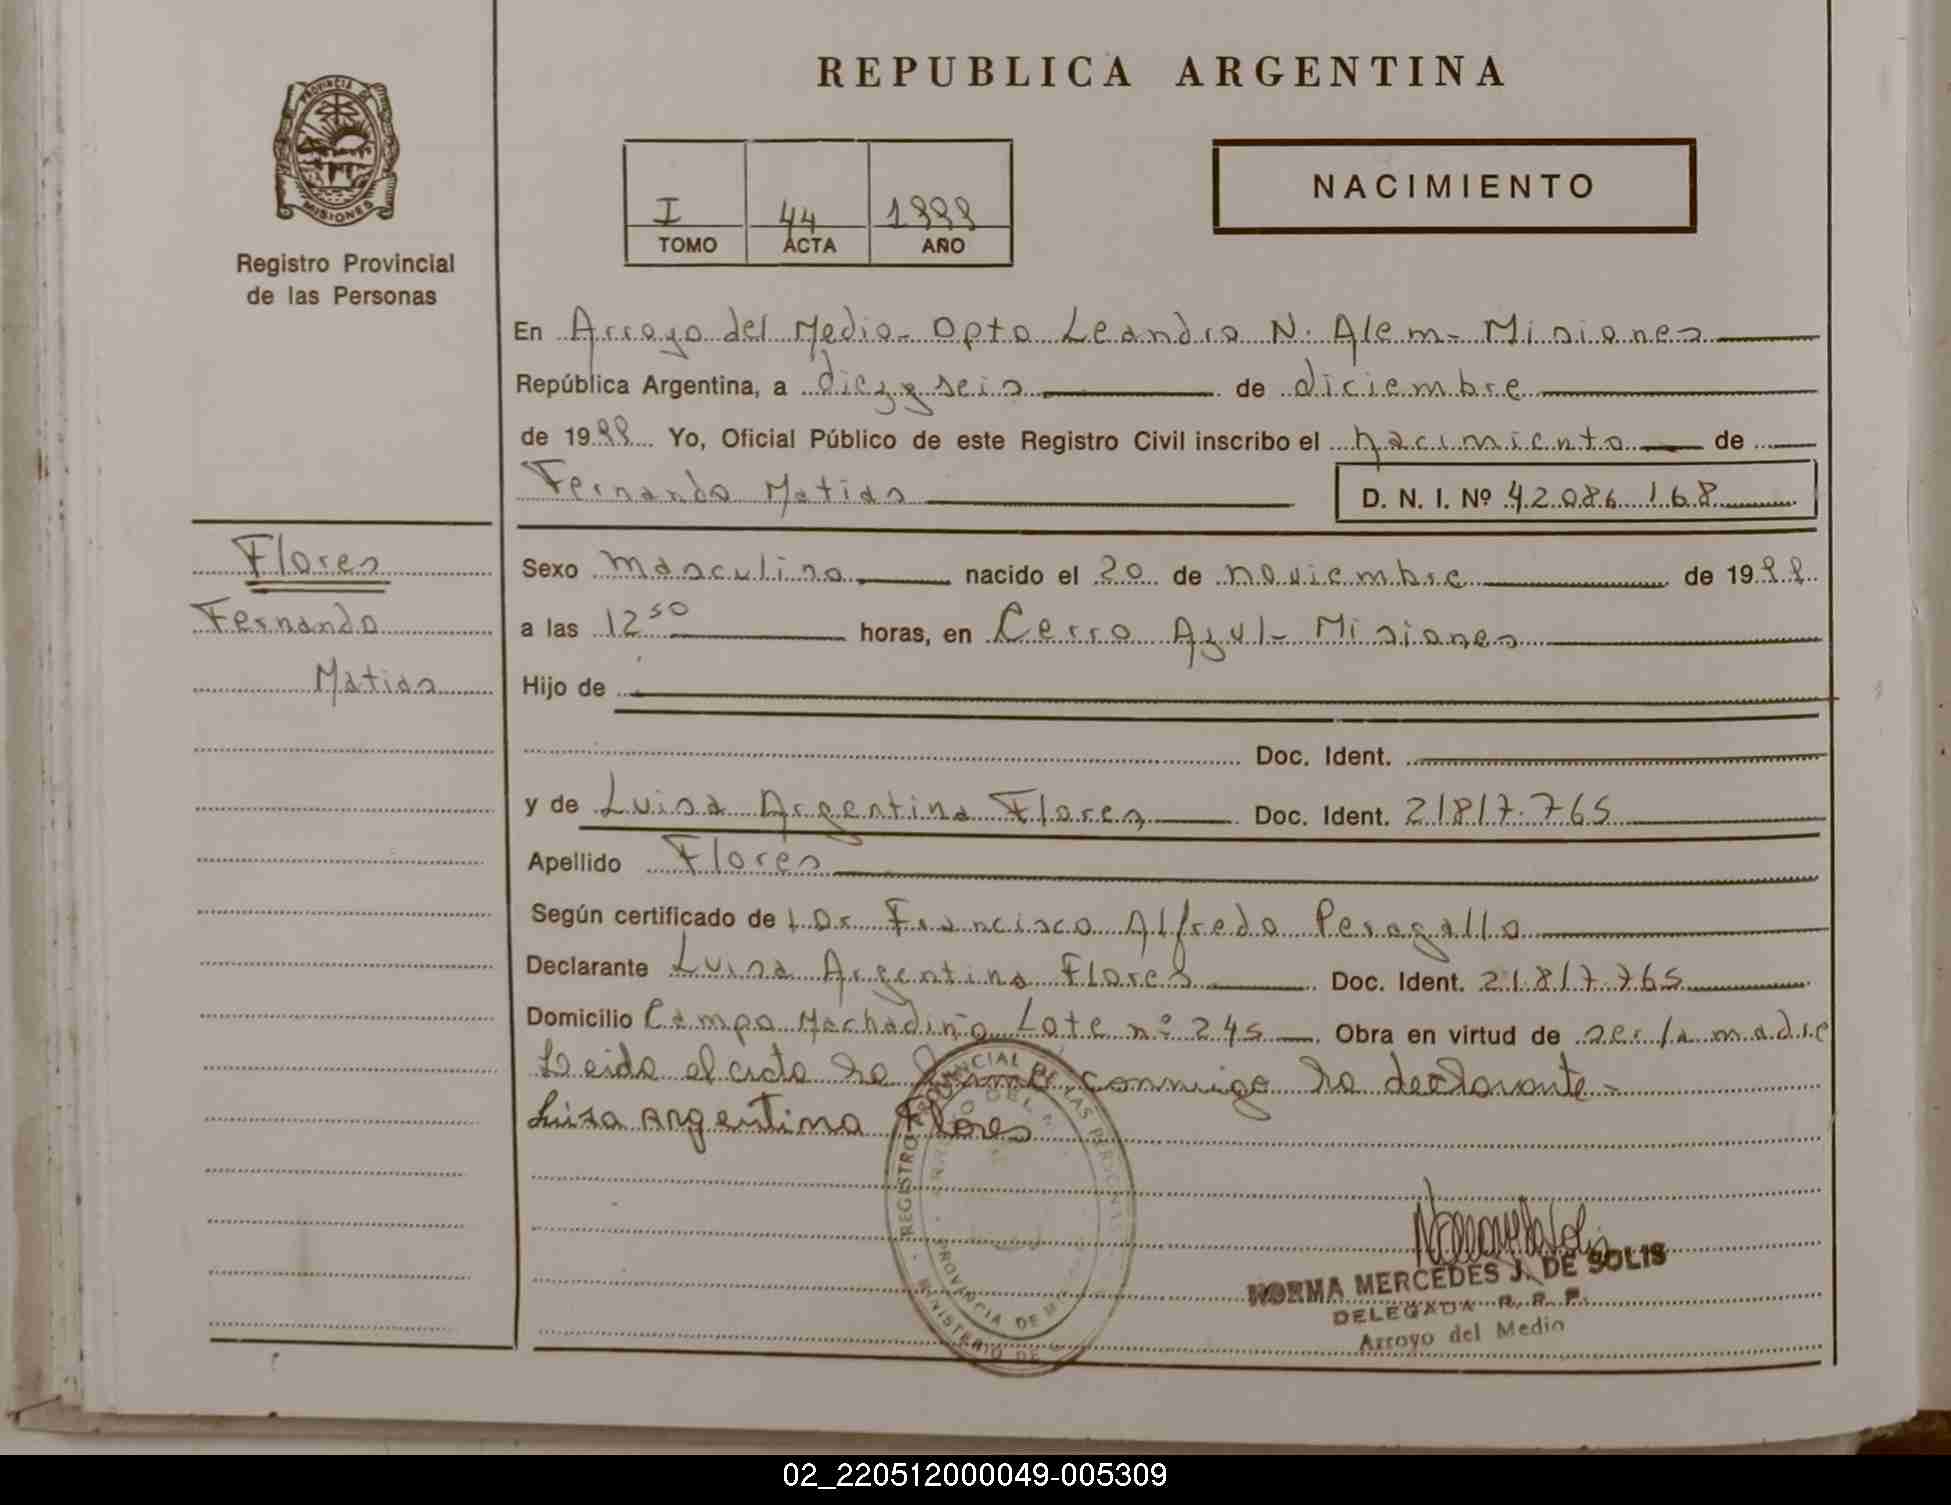 REPUBLICA ARGENTINA
PROVINCIA DE
MISIONES
Registro Provincial
de las Personas
I 44 1999
TOMO ACTA AÑO
NACIMIENTO
En Arroyo del Medio - Dpto Leandro N. Alem - Misiones
República Argentina, a diez y seis de diciembre
de 1999 Yo, Oficial Público de este Registro Civil inscribo el nacimiento de
Fernando Matias D. N. I. Nº 42086168
Flores
Fernando
Matias
Sexo masculino nacido el 20 de noviembre de 1999
a las 12 50 horas, en Cerro Azul - Misiones
Hijo de
Doc. Ident.
y de Luisa Argentina Flores Doc. Ident. 21817.765
Apellido Flores
Según certificado de Dr Francisco Alfredo Peragallo
Declarante Luisa Argentina Flores Doc. Ident. 21817.765
Domicilio Campo Machadinho Lote nº 245 Obra en virtud de ser la madre
Leida el acta la firma conmigo la declarante -
Luisa Argentina Flores
REGISTRO PROVINCIAL DE LAS PERSONAS
PROVINCIA DE
MINISTERIO DE
NORMA MERCEDES J. DE SOLIS
DELEGADA R. P. P.
Arroyo del Medio
02_220512000049-005309